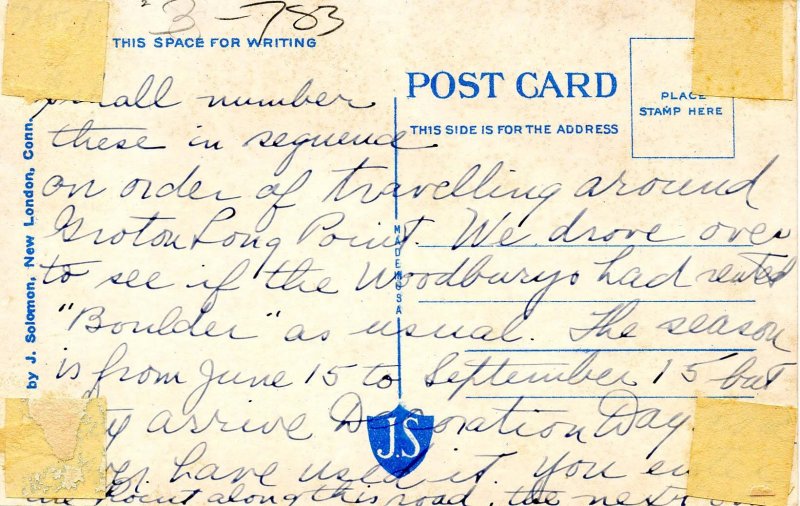 3-783
THIS SPACE FOR WRITING
POST CARD
THIS SIDE IS FOR THE ADDRESS
PLACE
STAMP HERE
by J. Solomon, New London, Conn.
MADE IN USA
J.S
shall number
these in sequence
on order of travelling around
Groton Long Point. We drove over
to see if the Woodburys had rented
"Boulder" as usual. The season
is from June 15 to September 15 but
arrive Decoration Day.
have used it. You
the Point along this road, the next